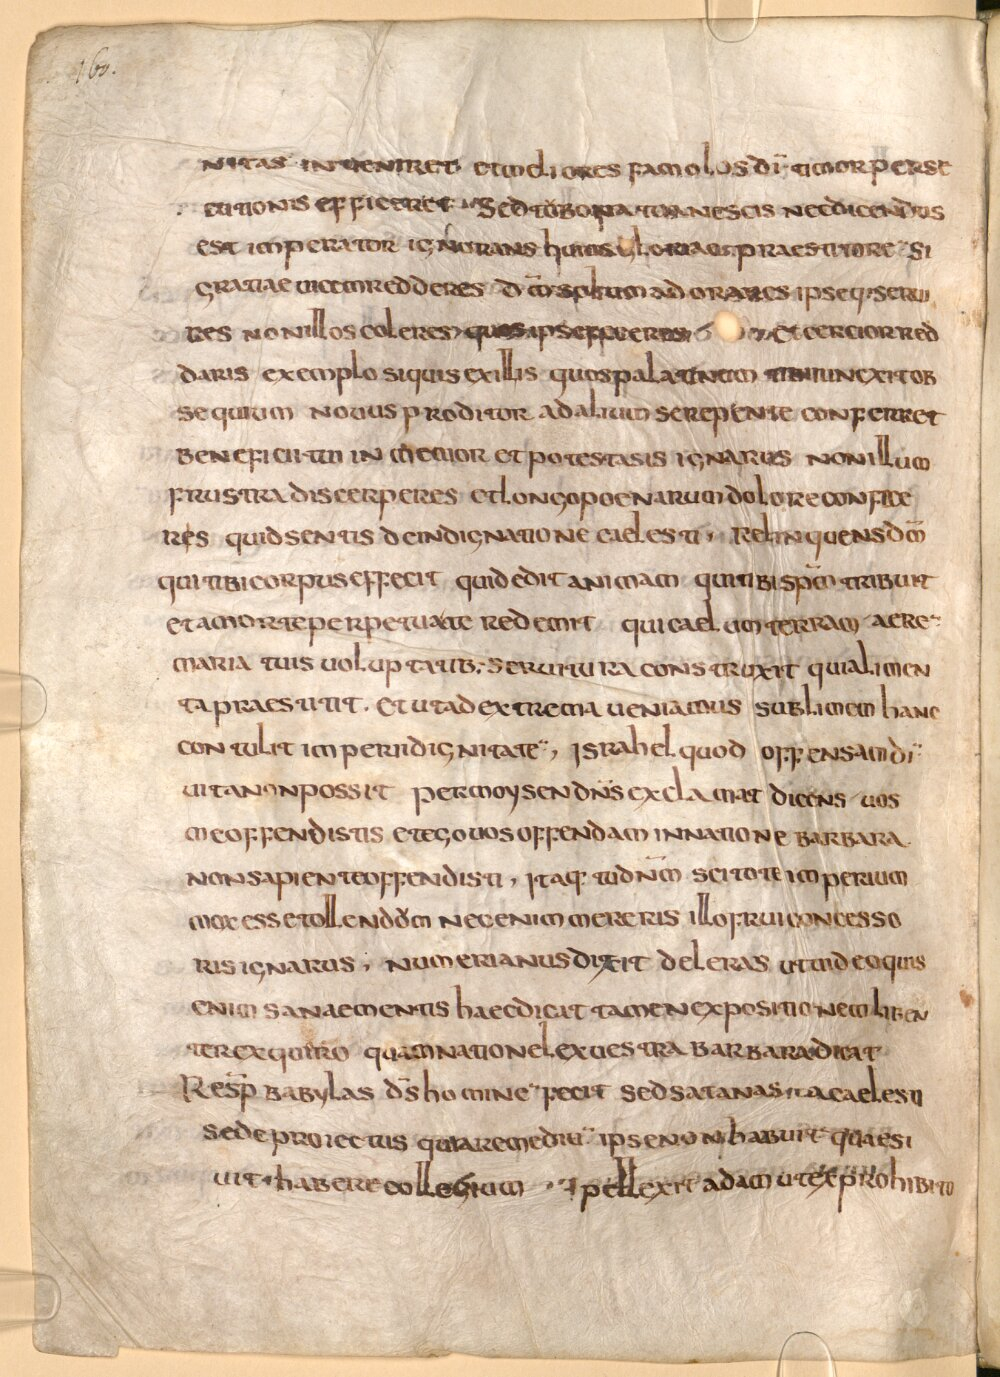 160.
nitas inueniret et meliores famolos dī timor perse
cutionis efficeret. Sed tu bona tua nescis nec dicendus
est imperator ignorans huius gloriae praestitore si
gratiae uicem redderes dm̄ splum adorares ipseq. serui
res non illos coleres quos ipse feceras et cercior red
daris exemplo siquis ex illis quos palatinum unexit ob
sequium nouus proditor ad alium se repente conferret
beneficii tui inmemor et potestatis ignarus non illum
frustra discerperes et longo poenarum dolore confice
res quid sentis de indignatione caelesti, Relinquens dm̄
qui tibi corpus effecit quidedit animam qui tibi spm̄ tribuit
et a morte perpetua te redemit qui caelum terram aere¨
maria tuis uoluptatib; seruitura construxit qui alimen
ta praestitit. et ut ad extrema ueniamus sublimem hanc
contulit imperii dignitate¨, israhel quod offensam dī
uita non possit per moysen dn̄s exclamat dicens uos
me offendistis et ego uos offendam in natione barbara
non sapiente offendisti, itaq. tu dn̄m scito te imperium
mox esse tollendum nec enim mereris illo frui concesso
ris ignarus; numerianus dixit deleras ut uideo quis
enim sanae mentis haec dicat tamen expositionem liben
ter exquiro quam natione lex uestra barbara dicat
Resp̄ babylas ds̄ homine¨ fecit sed satanas ita caelesti
sede proiectus quia remediu¨ ipse non habuit quaesi
uit habere collegium. pellexit adam ut ex prohibito